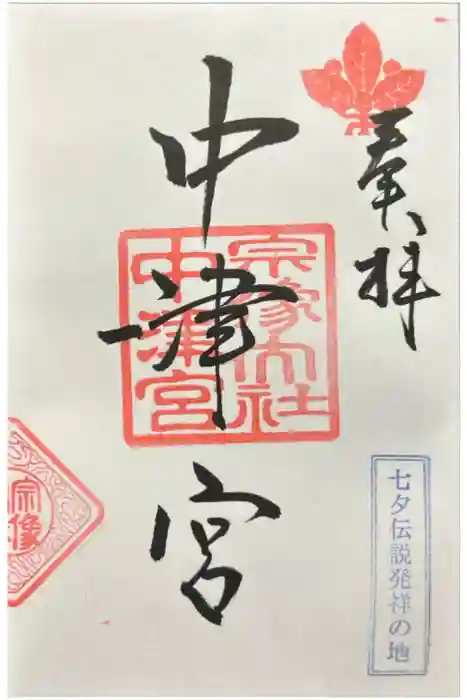 奉拝
七夕伝説発祥の地
中津宮
宗像大社
中津宮
宗像